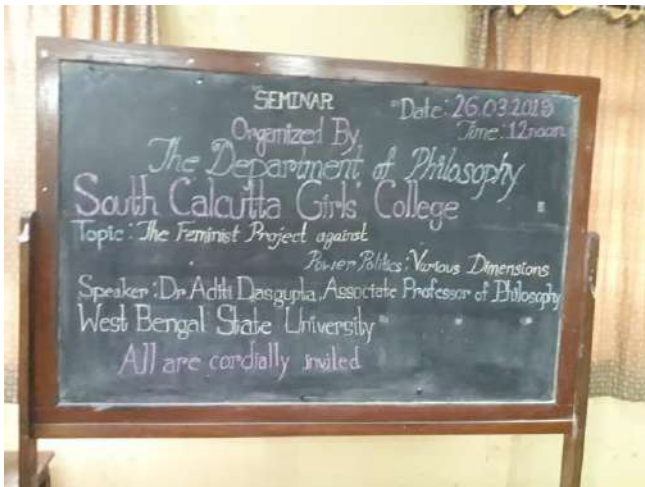 SEMINAR
Date: 26.03.2018
Time: 12noon
Organized By
The Department of Philosophy
South Calcutta Girls' College
Topic: The Feminist Project against
Power Politics: Various Dimensions
Speaker: Dr Aditi Dasgupta, Associate Professor of Philosophy
West Bengal State University
All are cordially invited